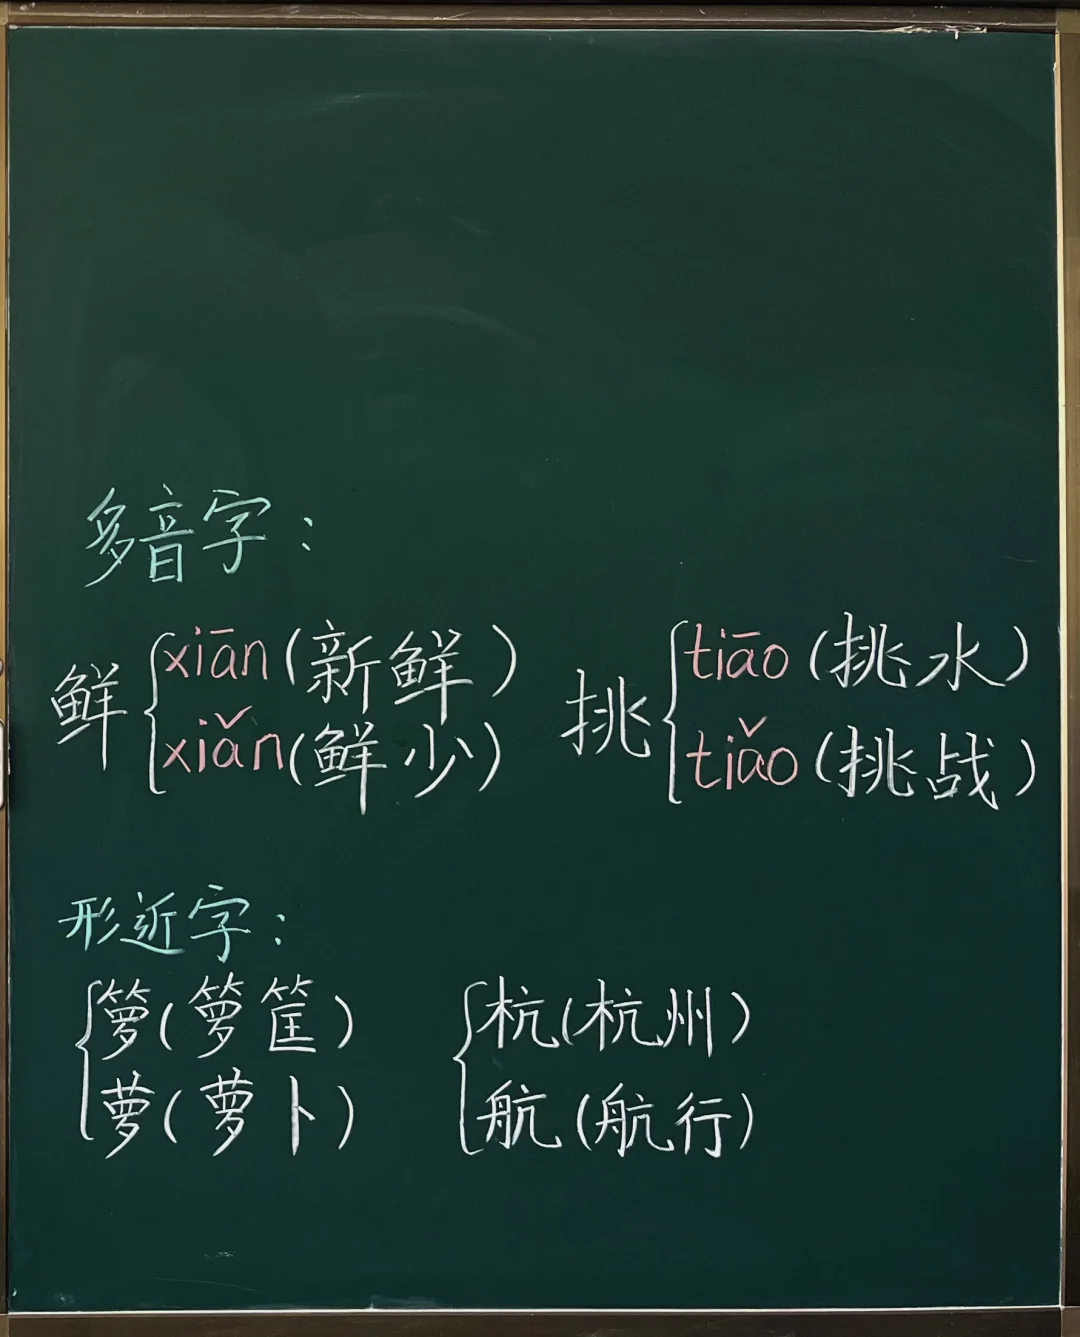 多音字：
鲜 xiān（新鲜） xiǎn（鲜少）
挑 tiāo（挑水） tiǎo（挑战）
形近字：
箩（箩筐） 杭（杭州）
萝（萝卜） 航（航行）